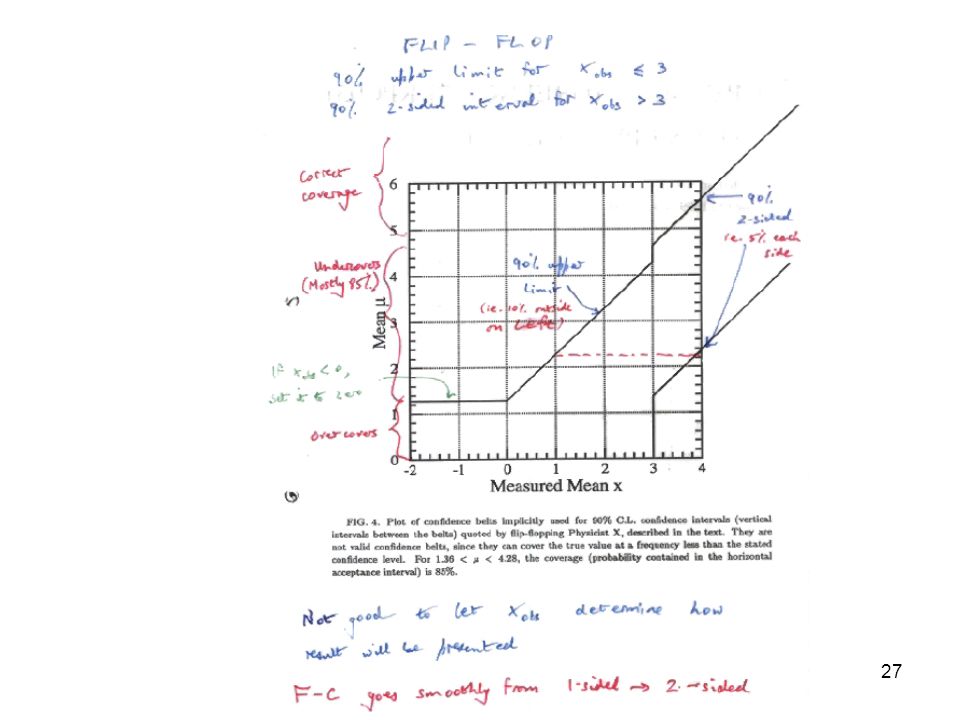 FLIP - FLOP
90% upper limit for x obs ≤ 3
90% 2-sided interval for x obs > 3
Correct
coverage
6
5
4
3
2
1
0
Undercovers
(Mostly 85%)
Mean μ
If x obs < 0,
set it to zero
Overcovers
90% upper
limit
(ie. 10% outside
on LEFT)
90%
2-sided
ie. 5% each
side
-2 -1 0 1 2 3 4
Measured Mean x
FIG. 4. Plot of confidence belts implicitly used for 90% C.L. confidence intervals (vertical
intervals between the belts) quoted by flip-flopping Physicist X, described in the text. They are
not valid confidence belts, since they can cover the true value at a frequency less than the stated
confidence level. For 1.36 < μ < 4.28, the coverage (probability contained in the horizontal
acceptance interval) is 85%.
Not good to let x obs determine how
result will be presented
F-C goes smoothly from 1-sided → 2-sided
27